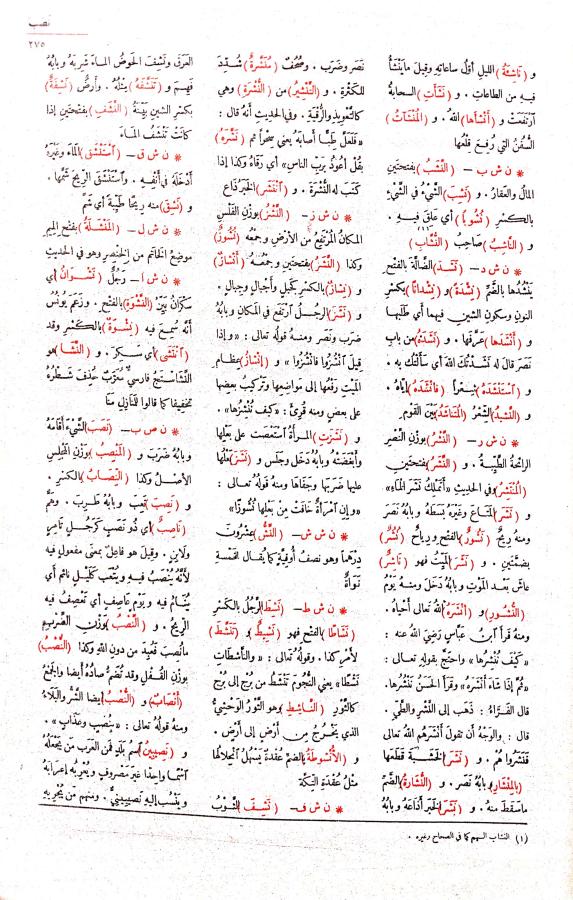 نصب
٢٧٥
و (نَاشِئَةُ) الليلِ أوّلُ ساعاتِهِ وقيلَ ما يَنْشَأُ
فيهِ من الطاعاتِ . و (نَشَأَتِ) السحابةُ
ارتفعَتْ و (أَنْشَأَهَا) اللهُ . و (المُنْشَآتُ)
السُّفُنُ التي رُفِعَ قِلْعُها
* ن ش ب – (النَّشَبُ) بفتحتينِ
المالُ والعَقارُ . و (نَشِبَ) الشيءُ في الشيْءِ
بالكَسْرِ (نُشُوباً) أي عَلِقَ فِيهِ .
و (النَّاشِبُ) صاحبُ (النُّشَّابِ)(١)
* ن ش د – (نَشَدَ) الضَّالَّةَ بالفتح
يَنْشُدُها بالضَّمِّ (نِشْدَةً) و (نِشْدَاناً) بكسرِ
النونِ وسكونِ الشينِ فيهِما أي طَلَبها
و (أَنْشَدَها) عَرَّفَها . و (نَشَدَهُ) من بابِ
نَصَرَ قال له نَشَدْتُكَ اللهَ أي سَأَلْتُك به .
و (اسْتَنْشَدَهُ) شِعْراً (فأَنْشَدَهُ) إيّاهُ .
و (النَّشِيدُ) الشِّعْرُ (المُتَنَاشَدُ) بَيْنَ القَوْمِ
* ن ش ر – (النَّشْرُ) بوزْنِ النَّصْرِ
الرائحةُ الطَّيِّبةُ . و (النَّشَرُ) بفتحتينِ
(المُنْتَشِرُ) وفي الحديثِ «أَتَمْلِكُ نَشَرَ المَاءِ»
و (نَشَرَ) المَتاعَ وغَيْرَهُ بَسَطَهُ وبابُهُ نَصَرَ
ومنه رِيحٌ (نَشُورٌ) بالفتحِ ورِياحٌ (نُشُرٌ)
بضمَّتينِ . و (نَشَرَ) المَيِّتُ فهو (نَاشِرٌ)
عاشَ بعدَ الموتِ وبابُهُ دَخَلَ ومنه يَوْمُ
(النُّشُورِ) و (أَنْشَرَهُ) اللهُ تعالى أَحياهُ .
ومنه قَرأَ ابنُ عباسٍ رَضِيَ اللهُ عنه :
«كَيْفَ نُنْشِرُهَا» واحتَجَّ بقولِهِ تعالى :
«ثُمَّ إِذَا شَاءَ أَنْشَرَهُ» وقرأَ الحَسَنُ نَنْشُرُها .
قال الفَرّاءُ : ذَهَبَ إلى النَّشْرِ والطَّيِّ .
قال : والوَجْهُ أن تقولَ أَنْشَرَهُمُ اللهُ تعالى
فَنَشَرُوا هُمْ . و (نَشَرَ) الخَشَبةَ قَطَعَها
(بالمِنْشَارِ) وبابُهُ نَصَرَ . و (النُّشَارَةُ) بالضَّمِّ
ما سقَطَ منه . و (نَشَرَ) الخَبَرَ أَذَاعَهُ وبابُهُ
نَصَرَ وضَرَبَ . وصُحُفٌ (مُنَشَّرَةٌ) شُدِّدَ
للكَثْرةِ . و (التَّنْشِيرُ) من (النُّشْرَةِ) وهي
كالتَّعْوِيذِ والرُّقْيةِ . وفي الحديثِ أنهُ قالَ :
«فَلَعَلَّ طِبًّا أَصابَهُ يعني سِحْراً ثم (نَشَّرَهُ)
بِقُلْ أَعُوذُ بِرَبِّ الناسِ» أي رَقَاهُ وكذا إذا
كَتَبَ له النُّشْرَةَ . و (انْتَشَرَ) الخَبَرُ ذَاعَ
* ن ش ز – (النَّشْزُ) بوَزْنِ الفَلْسِ
المكانُ المُرْتَفِعُ من الأرضِ وجمعُهُ (نُشُوزٌ)
وكذا (النَّشَزُ) بفتحتينِ وجمعُهُ (أَنْشَازٌ)
و (نِشَازٌ) بالكسرِ بَجَبَلٍ وأَجْبالٍ وجِبالٍ .
و (نَشَزَ) الرجلُ ارتفعَ في المكانِ وبابُهُ
ضَرَبَ ونَصَرَ ومنهُ قولُهُ تعالى : «وإذا
قِيلَ انْشُزُوا فَانْشُزُوا» و (إنْشَازُ) عِظامِ
المَيِّتِ رَفْعُها إلى مَواضِعِها وتَرْكيبُ بعضِها
على بعضٍ ومنه قُرِئَ : «كَيْفَ نُنْشِزُها» .
و (نَشَزَتِ) المرأةُ اسْتَعْصَتْ على بَعْلِها
وأَبْغَضَتْهُ وبابُهُ دَخَلَ وجَلَسَ و (نَشَزَ) بَعْلُها
عليها ضَرَبَها وجَفاها ومنهُ قولُهُ تعالى :
«وإنِ امْرَأَةٌ خَافَتْ مِنْ بَعْلِها نُشُوزًا»
* ن ش ش – (النَّشُّ) عِشْرُونَ
دِرْهَماً وهو نصفُ أُوقِيَّةٍ كما يُقالُ للخَمْسةِ
نَوَاةٌ
* ن ش ط – (نَشِطَ) الرَّجُلُ بالكَسْرِ
(نَشَاطًا) بالفتحِ فهو (نَشِيطٌ) و (تَنَشَّطَ)
لأَمْرِ كذا . وقولُهُ تعالى : «والنَّاشِطَاتِ
نَشْطًا» يعني النُّجومَ تَنْشَطُ من بُرْجٍ إلى بُرْجٍ
كالثَّوْرِ (النَّاشِطِ) وهو الثَّوْرُ الوَحْشِيُّ
الذي يَخْرُجُ مِن أَرْضٍ إلى أَرْضٍ .
و (الأُنْشُوطَةُ) بالضمِّ عُقْدةٌ يَسْهُلُ انْحِلالُها
مثلُ عُقْدةِ التِّكَّةِ
* ن ش ف – (نَشِفَ) الثَّوْبُ
العَرَقَ ونَشِفَ الحَوْضُ الماءَ شَرِبَهُ وبابُهُ
فَهِمَ و (تَنَشَّفَهُ) مِثْلُهُ . وأَرْضٌ (نَشِفَةٌ)
بكسرِ الشينِ بَيِّنَةُ (النَّشَفِ) بفتحتينِ إذا
كانَتْ تَنْشَفُ الماءَ
* ن ش ق – (اسْتَنْشَقَ) الماءَ وغَيْرَهُ
أَدْخَلَهُ في أنفِهِ . واسْتَنْشَقَ الرِّيحَ شَمَّها .
و (نَشِقَ) منه ريحًا طَيِّبةً أي شَمَّ
* ن ش ل – (المَنْشَلَةُ) بفتحِ الميمِ
موضعُ الخاتَمِ من الخِنْصِرِ وهو في الحديثِ
* ن ش ا – رَجُلٌ (نَشْوَانُ) أي
سَكْرانُ بَيِّنُ (النَّشْوَةِ) بالفتحِ . وزَعَمَ يُونُسُ
أنه سُمِعَ فيه (نِشْوَةٌ) بالكَسْرِ وقد
(انْتَشَى) أي سَكِرَ . و (النَّشَا) هو
النَّشَاسْتَجُ فارسيٌّ مُعَرَّبٌ حُذِفَ شَطْرُهُ
تخفيفا كما قالوا للمَنازِلِ مَنَا
* ن ص ب – (نَصَبَ) الشيءَ أَقامَهُ
وبابُهُ ضَرَبَ و (المَنْصِبُ) بوزْنِ المَجْلِسِ
الأصلُ وكذا (النِّصَابُ) بالكسرِ .
و (نَصِبَ) تَعِبَ وبابُهُ طَرِبَ . وهَمٌّ
(نَاصِبٌ) أي ذو نَصَبٍ كرَجُلٍ تَامِرٍ
ولَابِنٍ . وقيلَ هو فاعلٌ بمعنى مفعولٍ فيه
لأَنَّهُ يُنْصَبُ فيهِ ويُتْعَبُ كَلَيْلٍ نائمٍ أي
يُنَامُ فيه ويَوْمٍ عاصِفٍ أي تَعْصِفُ فيه
الرِّيحُ . و (النَّصْبُ) بوَزْنِ الضَّرْبِ
ما نُصِبَ فعُبِدَ من دونِ اللهِ وكذا (النُّصْبُ)
بوزنِ القُفْلِ وقد تُضَمُّ صادُهُ أيضا والجمعُ
(أَنْصَابٌ) و (النُّصْبُ) أيضا الشَّرُّ والبَلَاءُ
ومنه قولُهُ تعالى : «بِنُصْبٍ وعَذَابٍ» .
و (نَصِيبِينُ) اسمُ بلَدٍ فمن العربِ من يَجْعَلُهُ
اسْمًا واحدًا غيرَ مَصْروفٍ ويُعْرِبُهُ إعرابَهُ
ويَنْسُبُ إليهِ نَصِيبِينيٌّ . ومنهم مَن يُجْرِيهِ
(١) النشاب السهم كما في الصحاح وغيره .